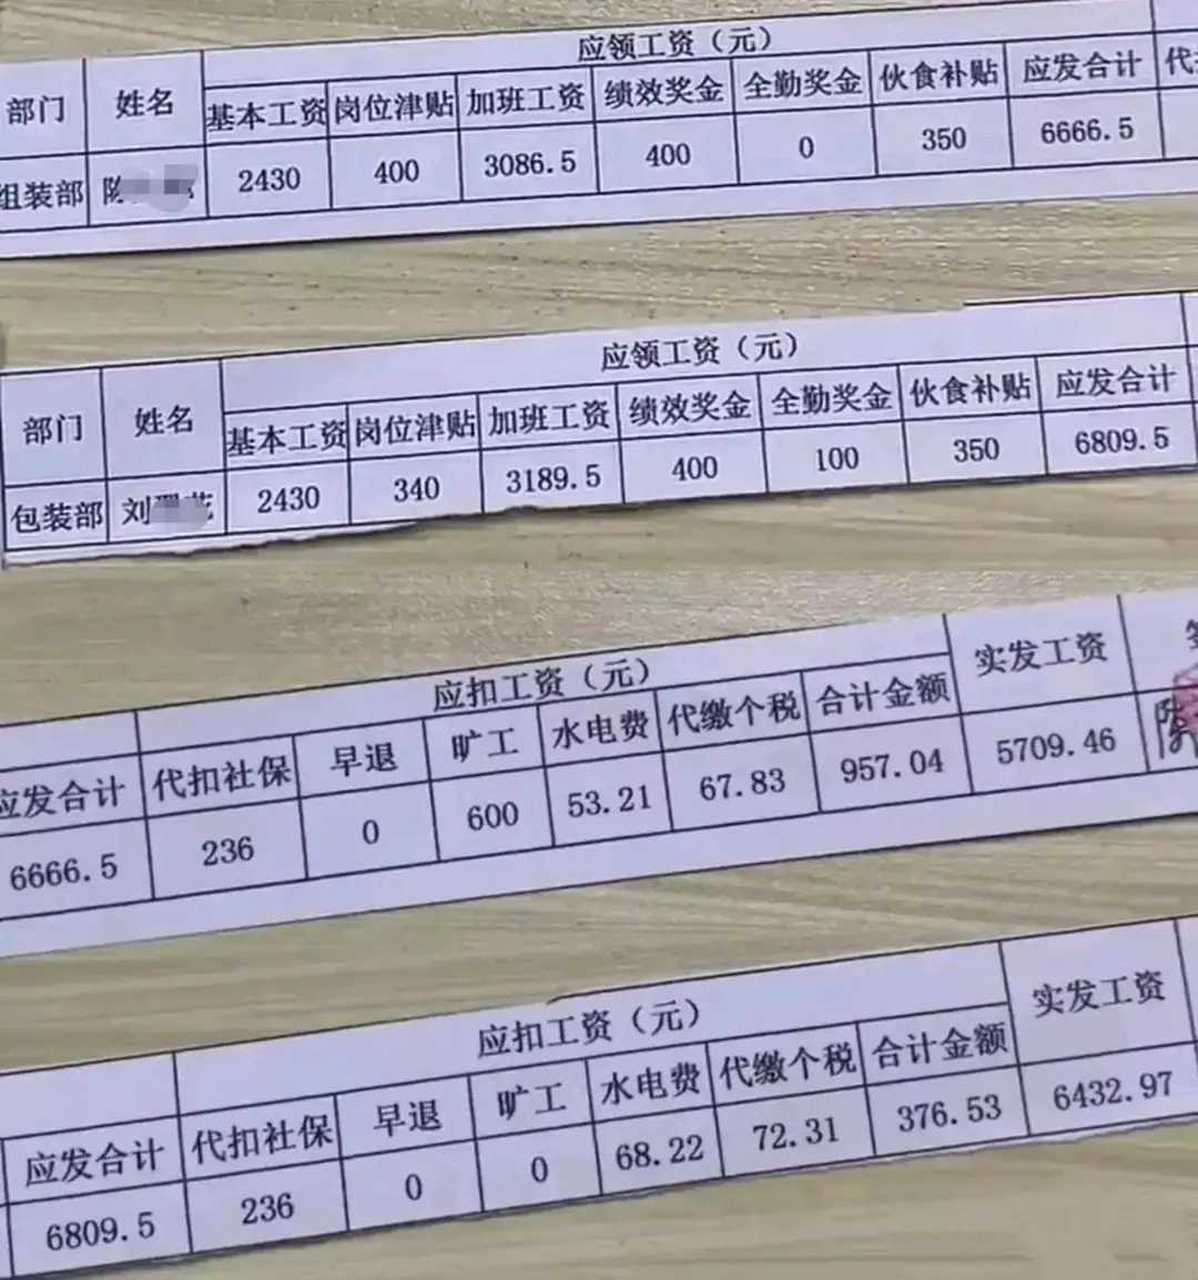 应领工资（元）
部门 姓名 基本工资 岗位津贴 加班工资 绩效奖金 全勤奖金 伙食补贴 应发合计 代
组装部 陈 2430 400 3086.5 400 0 350 6666.5
应领工资（元）
部门 姓名 基本工资 岗位津贴 加班工资 绩效奖金 全勤奖金 伙食补贴 应发合计
包装部 刘 2430 340 3189.5 400 100 350 6809.5
应扣工资（元） 实发工资
应发合计 代扣社保 早退 旷工 水电费 代缴个税 合计金额
6666.5 236 0 600 53.21 67.83 957.04 5709.46 陈
应扣工资（元） 实发工资
应发合计 代扣社保 早退 旷工 水电费 代缴个税 合计金额
6809.5 236 0 0 68.22 72.31 376.53 6432.97